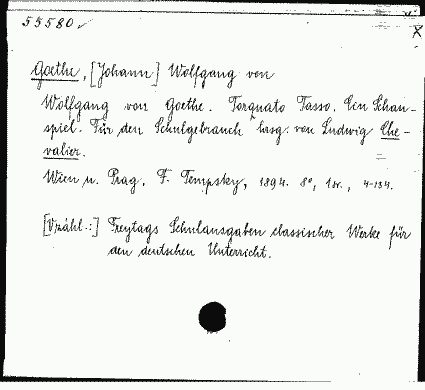 55580
X
Goethe, [Johann] Wolfgang von
Wolfgang von Goethe. Torquato Tasso. Ein Schau-
spiel. Für den Schulgebrauch hrsg. von Ludwig Che-
valier.
Wien u. Prag, F. Tempsky, 1894. 8°, 4-134.
Freytags Schulausgaben classischer Werke für
den deutschen Unterricht.